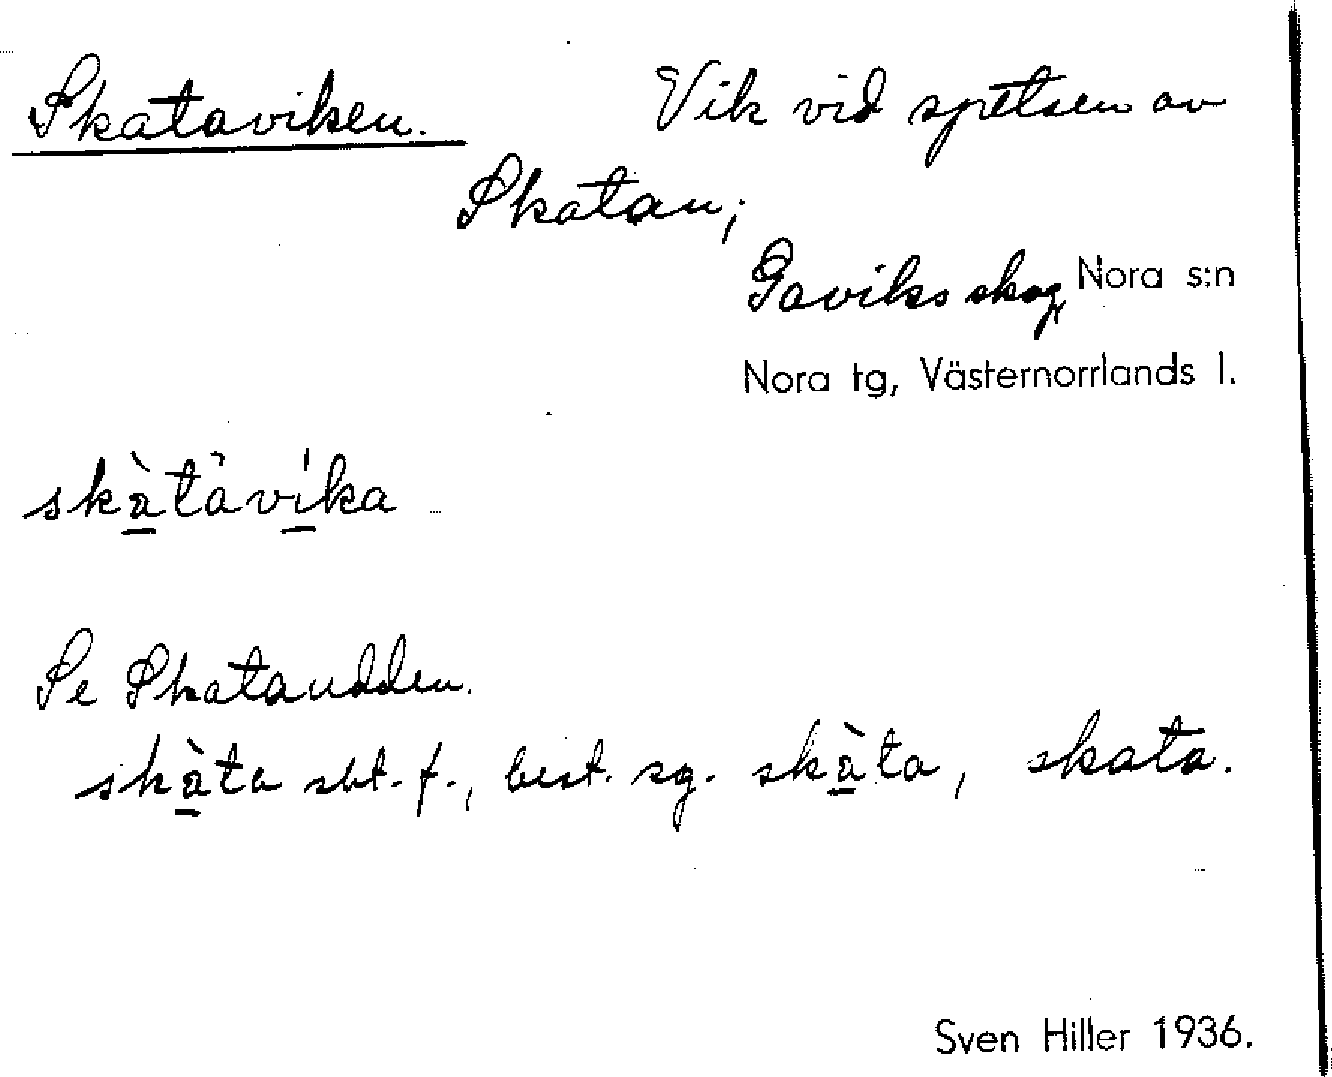 Skataviken. Vik vid spetsen av
Skatan;
Gaviks skog, Nora s:n
Nora tg, Västernorrlands l.
skà̱tàvi̱ka
Se Skataudden.
skà̱ta sbt. f., best. sg. skà̱ta, skata.
Sven Hiller 1936.